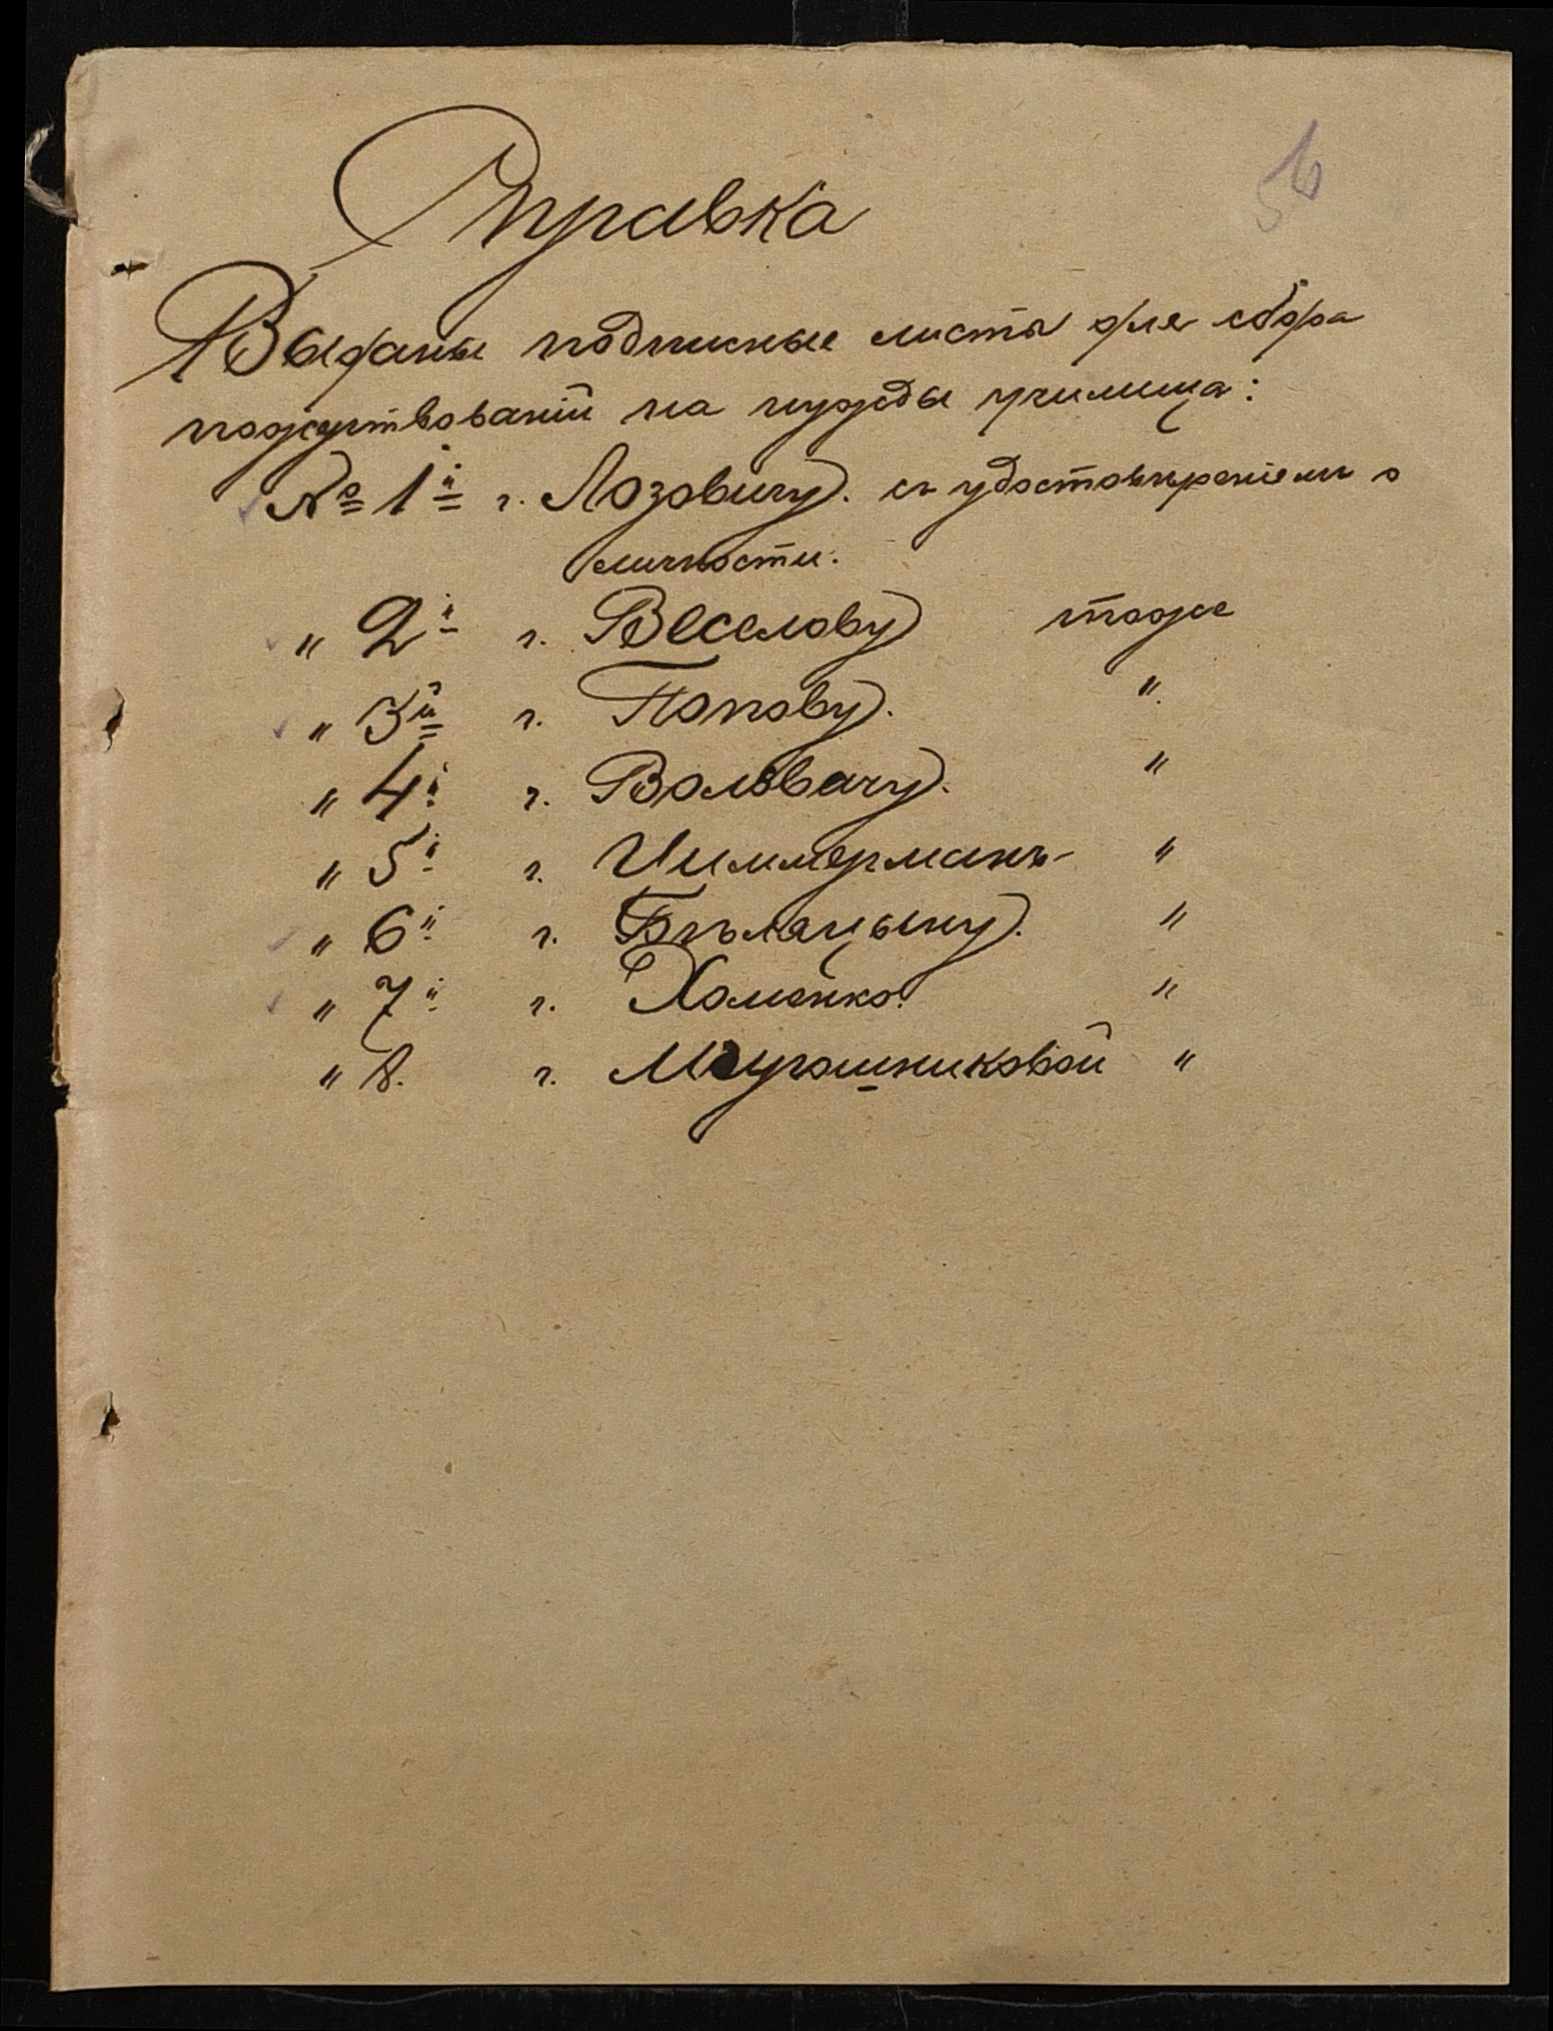 56
Справка
Выданы подписные листы для сбора
пожертвованій на нужды училища:
№ 1й г. Лозовичу. съ удостовѣреніемъ о
личности.
" 2й г. Веселову тоже
" 3й г. Попову. "
" 4й г. Воловачу. "
" 5й г. Циммерманъ "
" 6й г. Бѣлацыну. "
" 7й г. Хоменко. "
" 8. г. "